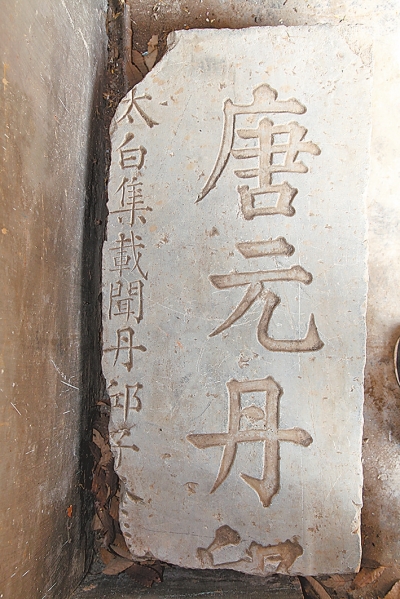 唐元丹
太白集載聞丹邱子